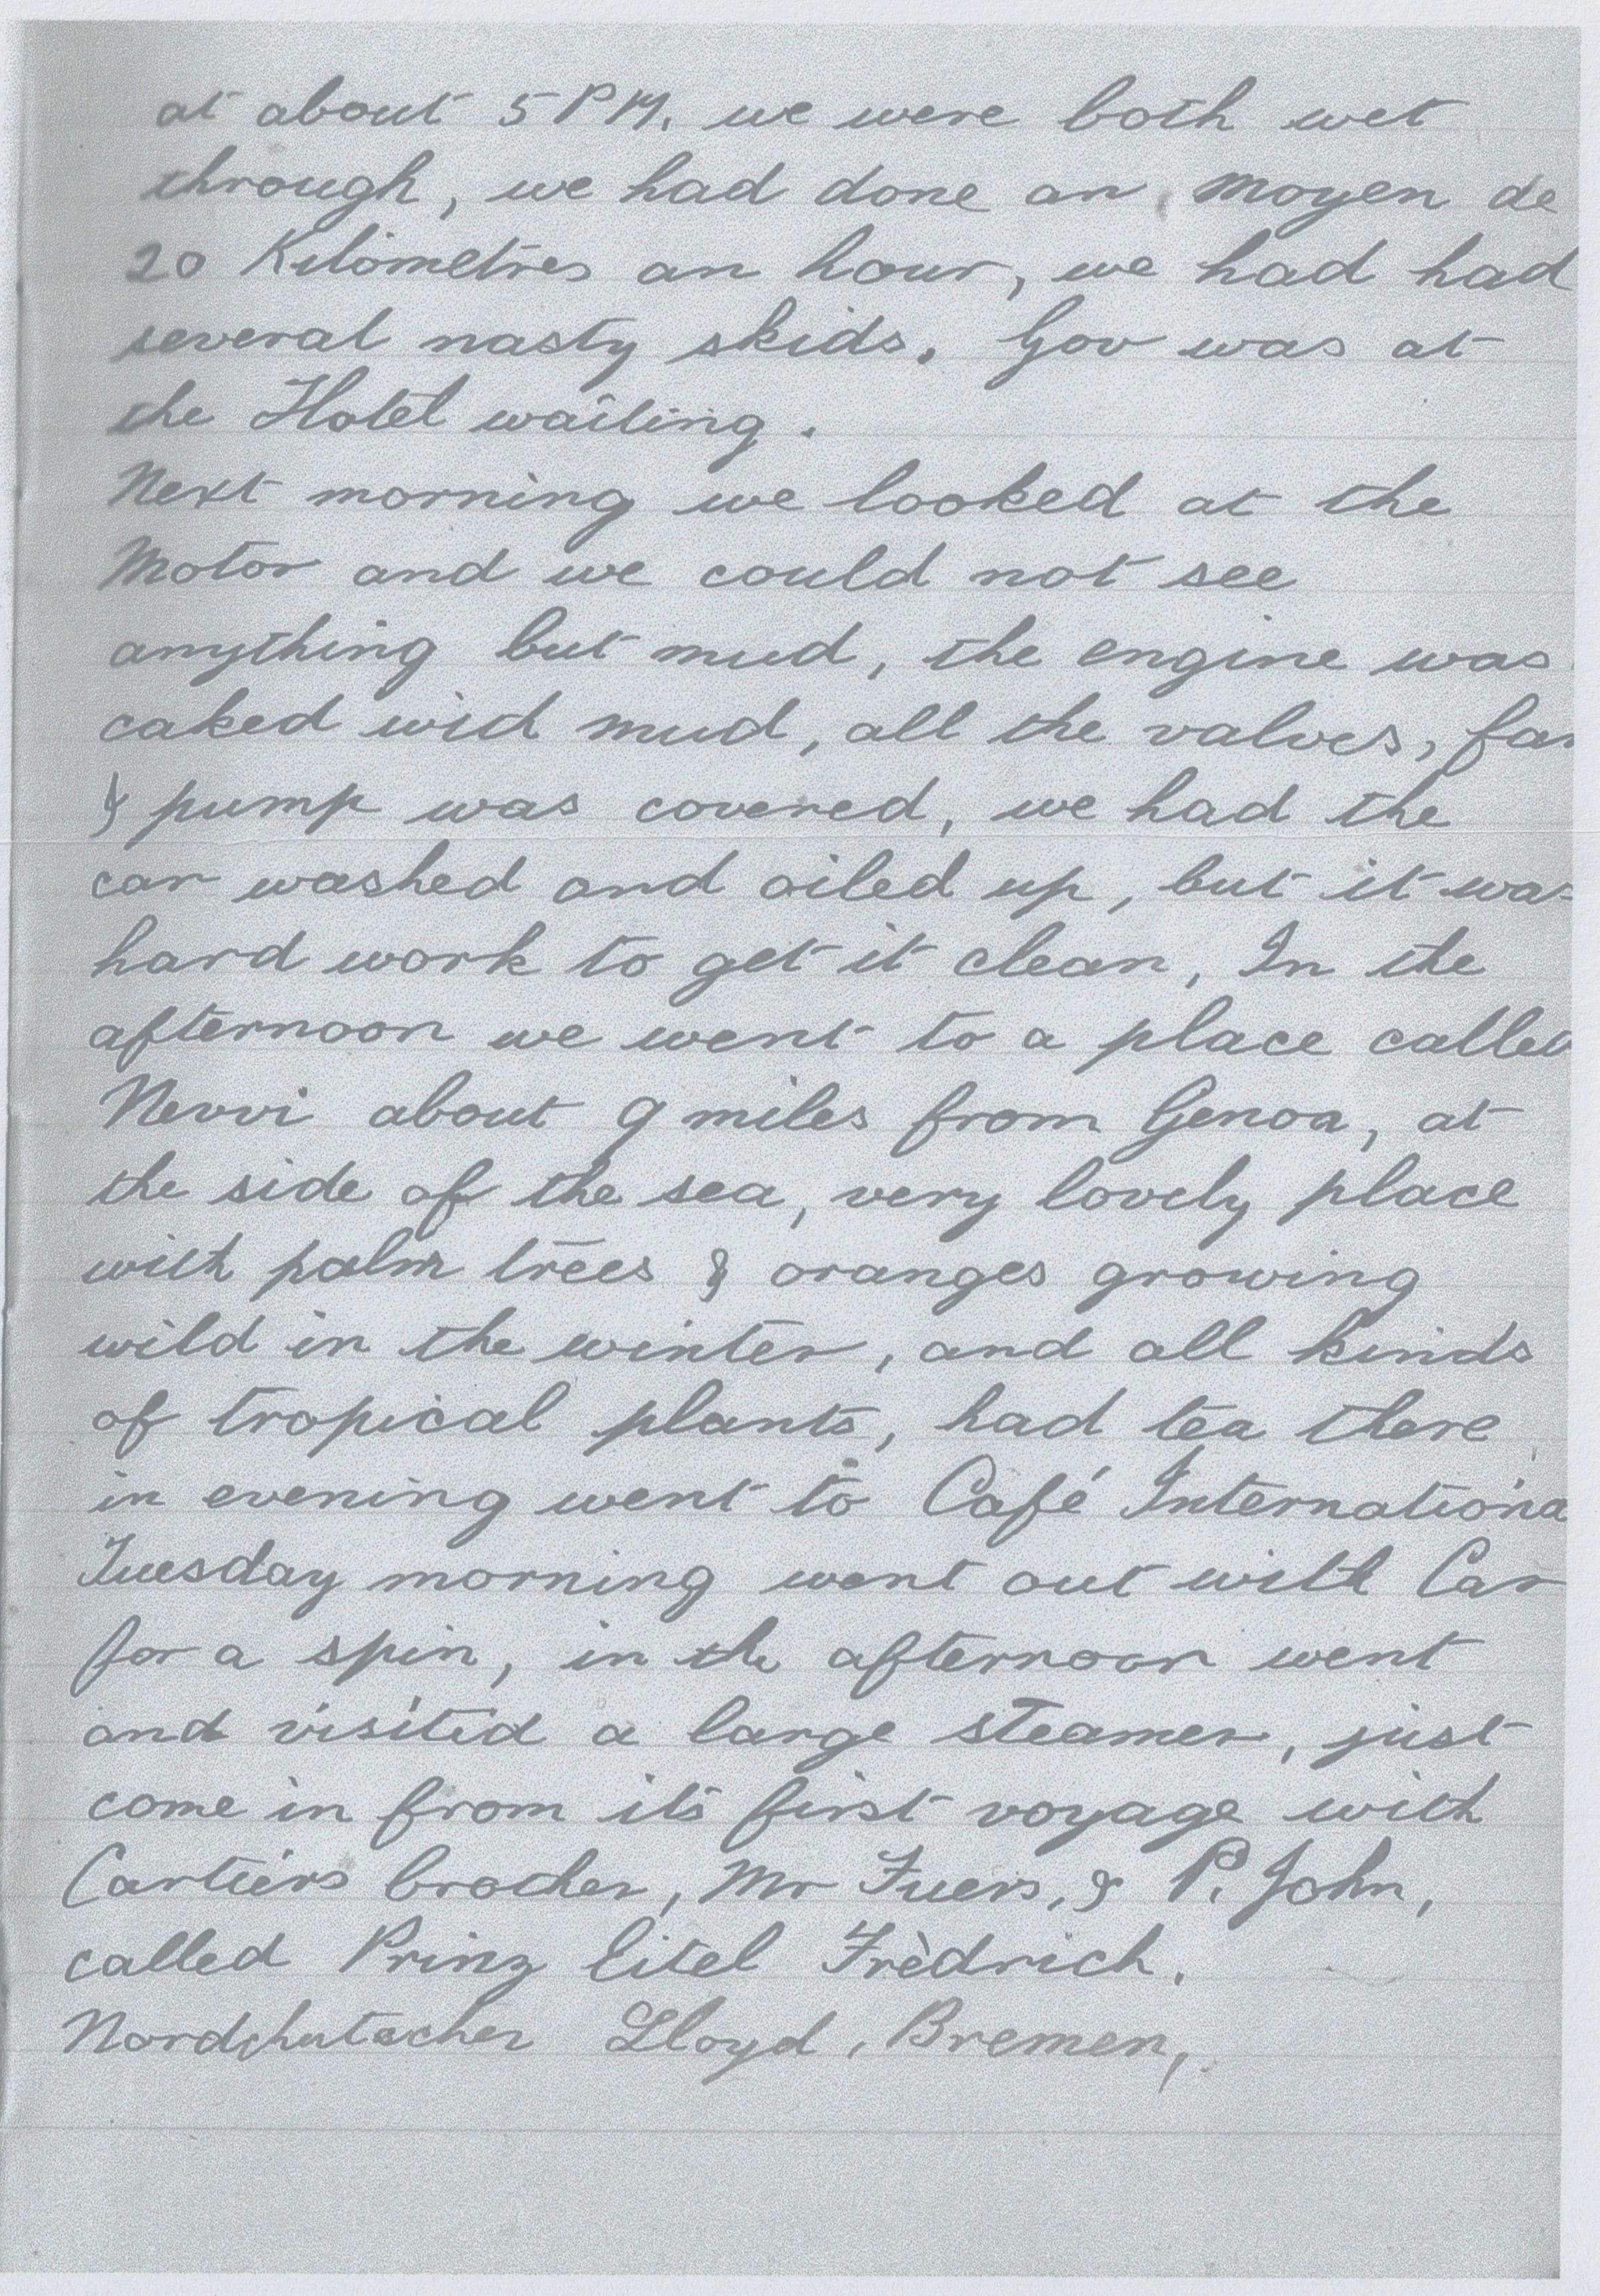 at about 5 PM, we were both wet
through, we had done an moyen de
20 Kilometres an hour, we had had
several nasty skids. Gov was at
the Hotel waiting.
Next morning we looked at the
Motor and we could not see
anything but mud, the engine was
caked wid mud, all the valves, fan
& pump was covered, we had the
car washed and oiled up, but it was
hard work to get it clean, In the
afternoon we went to a place called
Nervi about 9 miles from Genoa, at
the side of the sea, very lovely place
with palm trees & oranges growing
wild in the winter, and all kinds
of tropical plants, had tea there
in evening went to Café Internationa
Tuesday morning went out with Car
for a spin, in the afternoon went
and visited a large steamer, just
come in from its first voyage with
Cartiers brother, Mr Fuers, & P. John,
called Prinz Eitel Frèdrich.
Lloyd, Bremen,